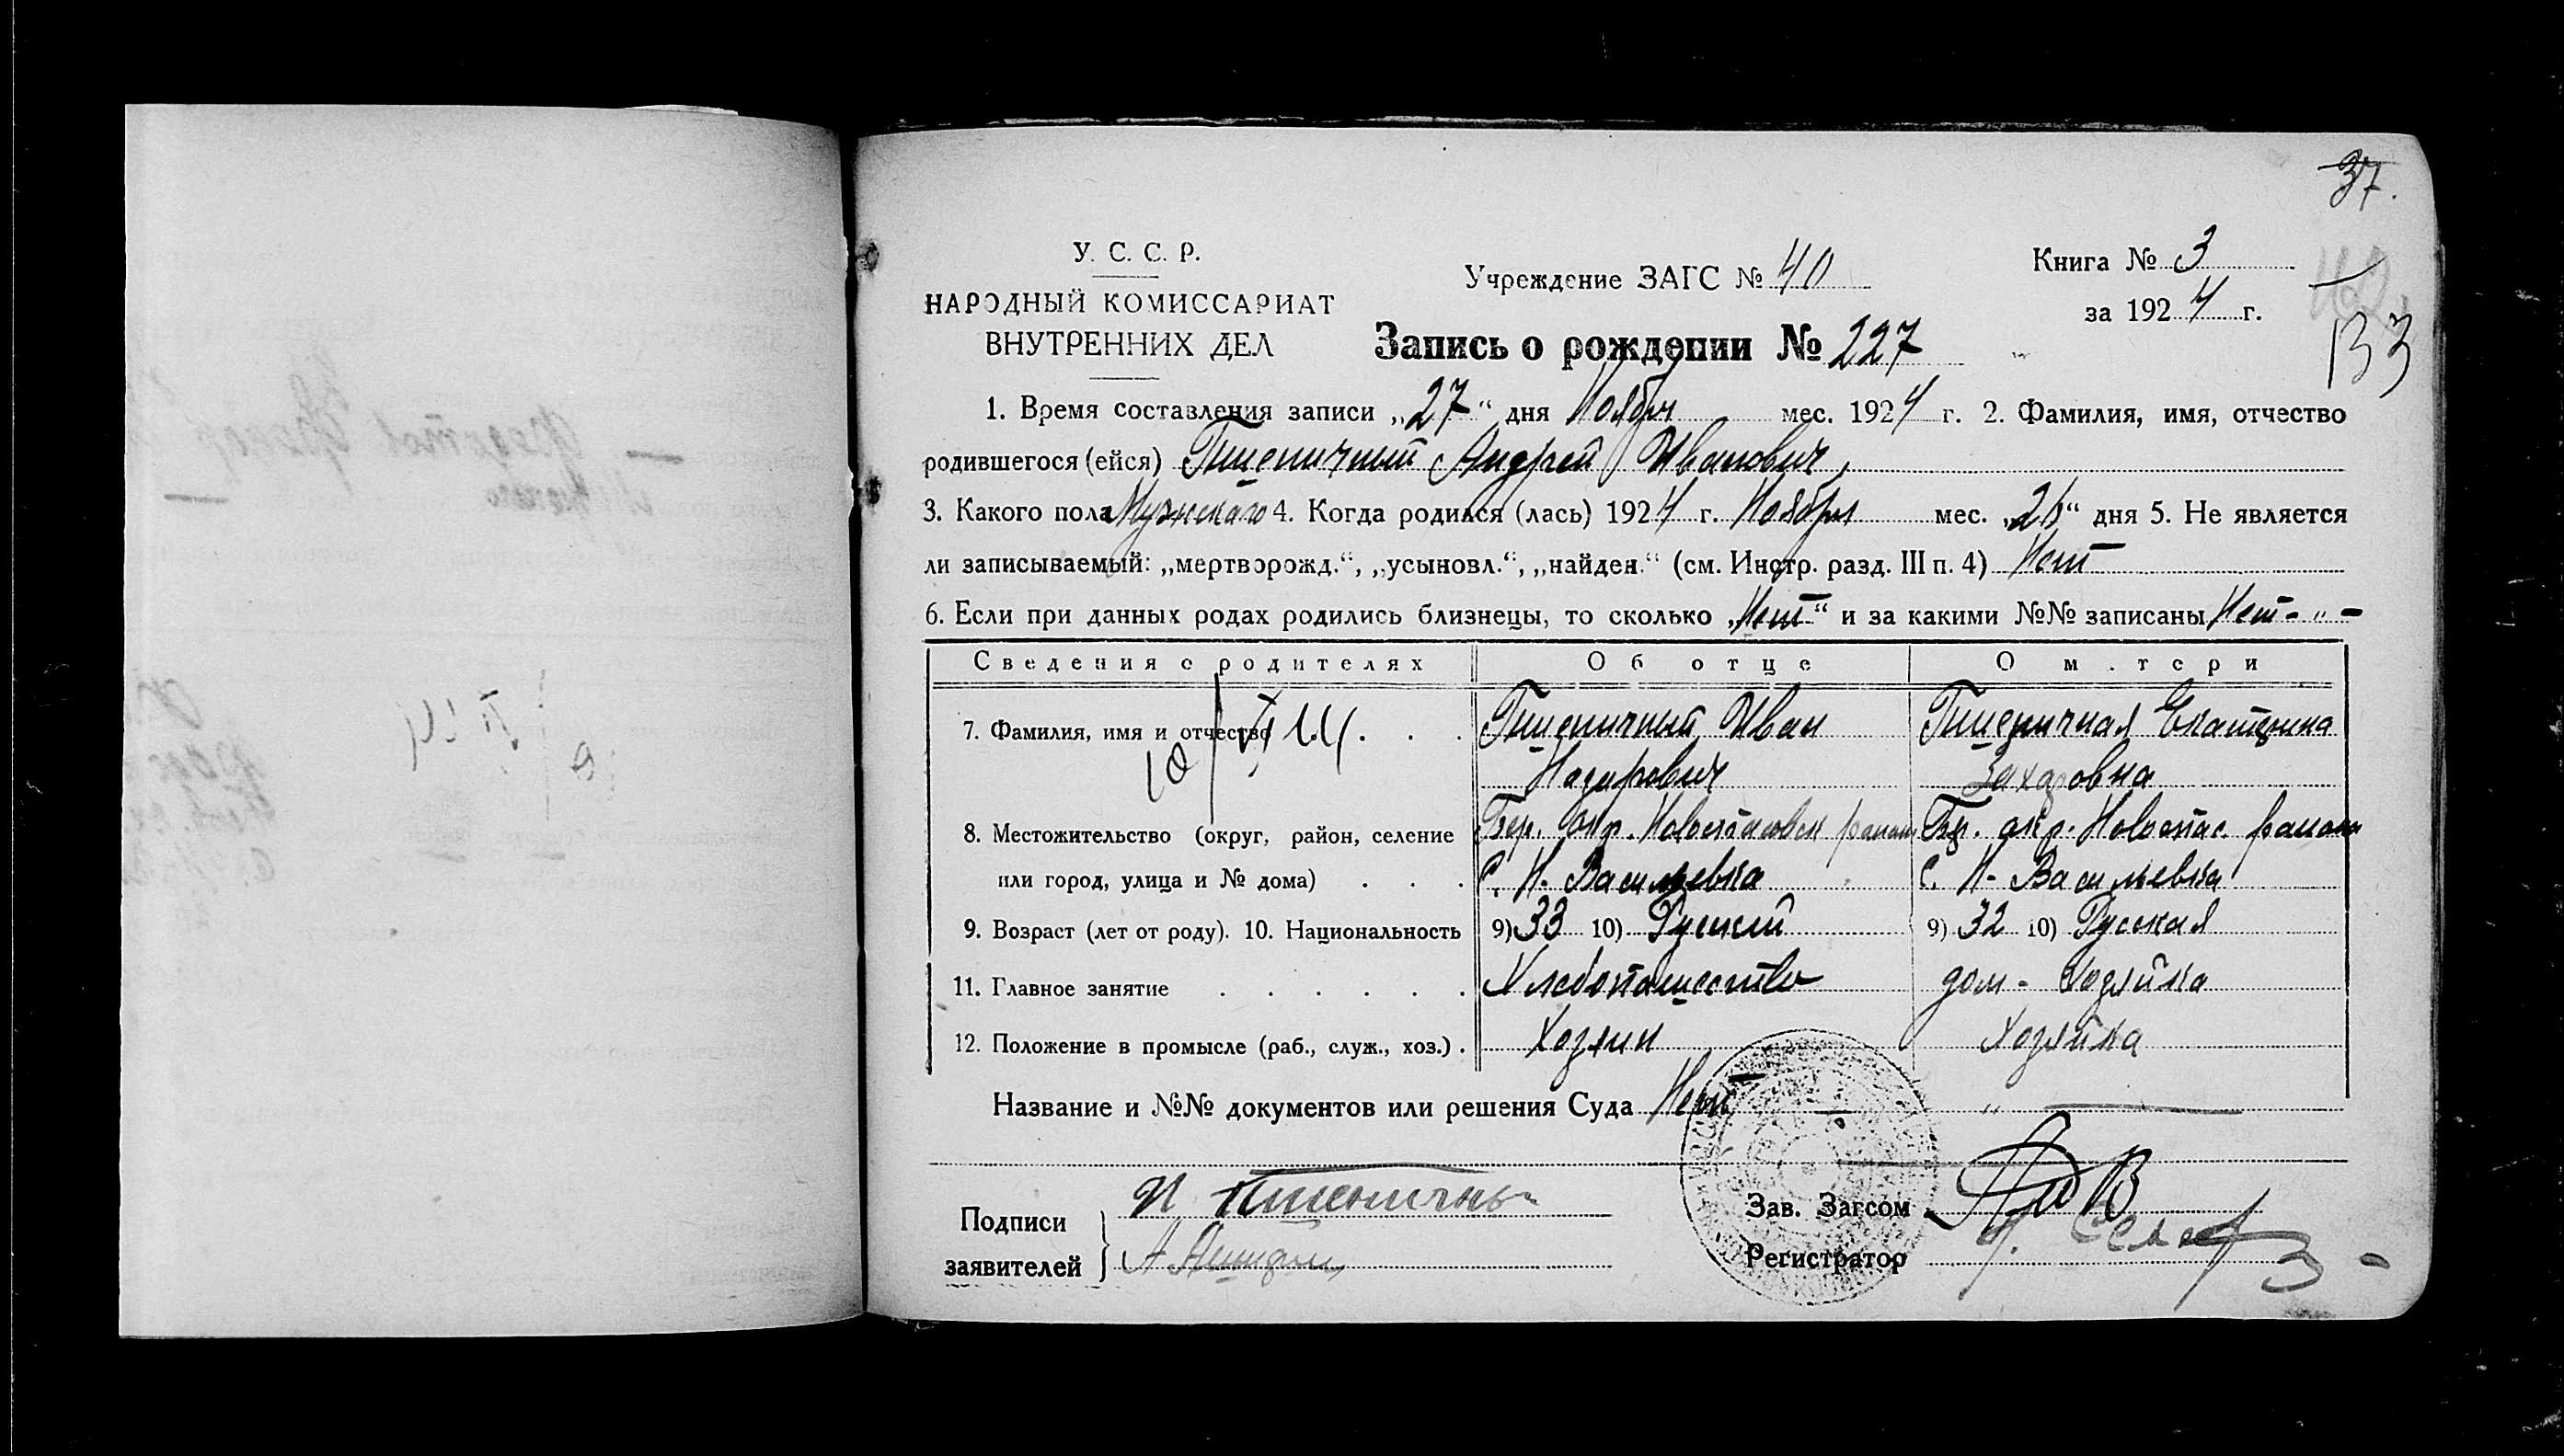 37.
У. С. С. Р.
НАРОДНЫЙ КОМИССАРИАТ
ВНУТРЕННИХ ДЕЛ
Учреждение ЗАГС № 40
Книга № 3
за 1924 г.
133
Запись о рождении № 227
1. Время составления записи „27“ дня Ноября мес. 1924 г. 2. Фамилия, имя, отчество
родившегося (ейся) Пшеничный Андрей Иванович,
3. Какого пола Мужскаго 4. Когда родился (лась) 1924 г. Ноября мес. „26“ дня 5. Не является
ли записываемый: „мертворожд.“, „усыновл.“, „найден.“ (см. Инстр. разд. III п. 4) Нет
6. Если при данных родах родились близнецы, то сколько „Нет“ и за какими №№ записаны Нет - „ -
Сведения о родителях Об отце О м.тери
7. Фамилия, имя и отчество . . . Пшеничный Иван Пшеничная Екатерина
Назарович Захаровна
8. Местожительство (округ, район, селение Бер. окр. Новоспасовск района Бер. окр. Новоспас. района
или город, улица и № дома) . . . С. Н. Васильевка С. Н. Васильевка
9. Возраст (лет от роду). 10. Национальность 9) 33 10) Руский 9) 32 10) Русская
11. Главное занятие . . . . . . Хлебопашество дом - Хозяйка
12. Положение в промысле (раб., служ., хоз.) . Хозяин Хозяйка
Название и №№ документов или решения Суда Нет — „ —
Подписи
заявителей
И Пшеничны
А
Зав. Загсом
Регистратор